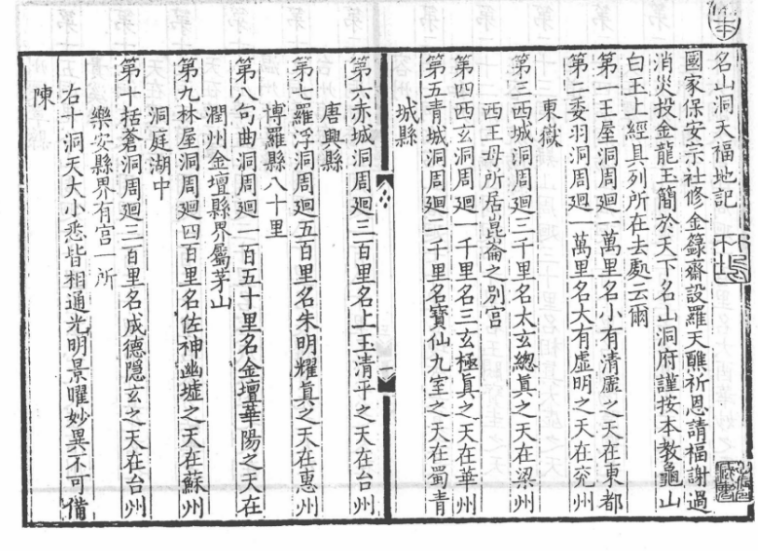 名山洞天福地記
國家保安宗社修金籙齋設羅天醮祈恩請福謝過
消災投金龍玉簡於天下名山洞府謹按本教龜山
白玉上經具列所在去處云爾
第一王屋洞周廻一萬里名小有清虛之天在東都
第二委羽洞周廻一萬里名大有虛明之天在兖州
東嶽
第三西城洞周廻三千里名太玄總真之天在梁州
西王母所居崑崙之別宮
第四西玄洞周廻一千里名三玄極真之天在華州
第五青城洞周廻二千里名寶仙九室之天在蜀青
城縣
第六赤城洞周廻三百里名上玉清平之天在台州
唐興縣
第七羅浮洞周廻五百里名朱明耀眞之天在惠州
博羅縣八十里
第八句曲洞周廻一百五十里名金壇華陽之天在
潤州金壇縣界屬茅山
第九林屋洞周廻四百里名佐神幽墟之天在蘇州
洞庭湖中
第十括蒼洞周廻三百里名成德隱玄之天在台州
樂安縣界有宮一所
右十洞天大小悉皆相通光明景曜妙異不可備
陳
一